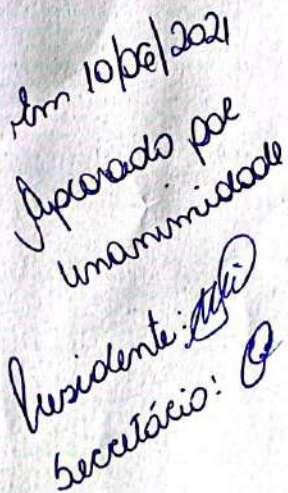 Em 10/06/2021
Aprovado por
unanimidade
Presidente:
Secretário: